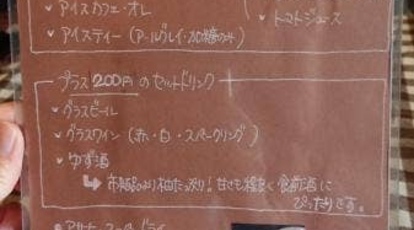 アイスカフェ・オレ
トマトジュース
アイスティー(アールグレイ・加糖のみ)
プラス200円のセットドリンク
グラスビール
グラスワイン(赤・白・スパークリング)
ゆず酒
↳市販品より柚たっぷり!甘さも程良く食前酒に
ぴったりです。